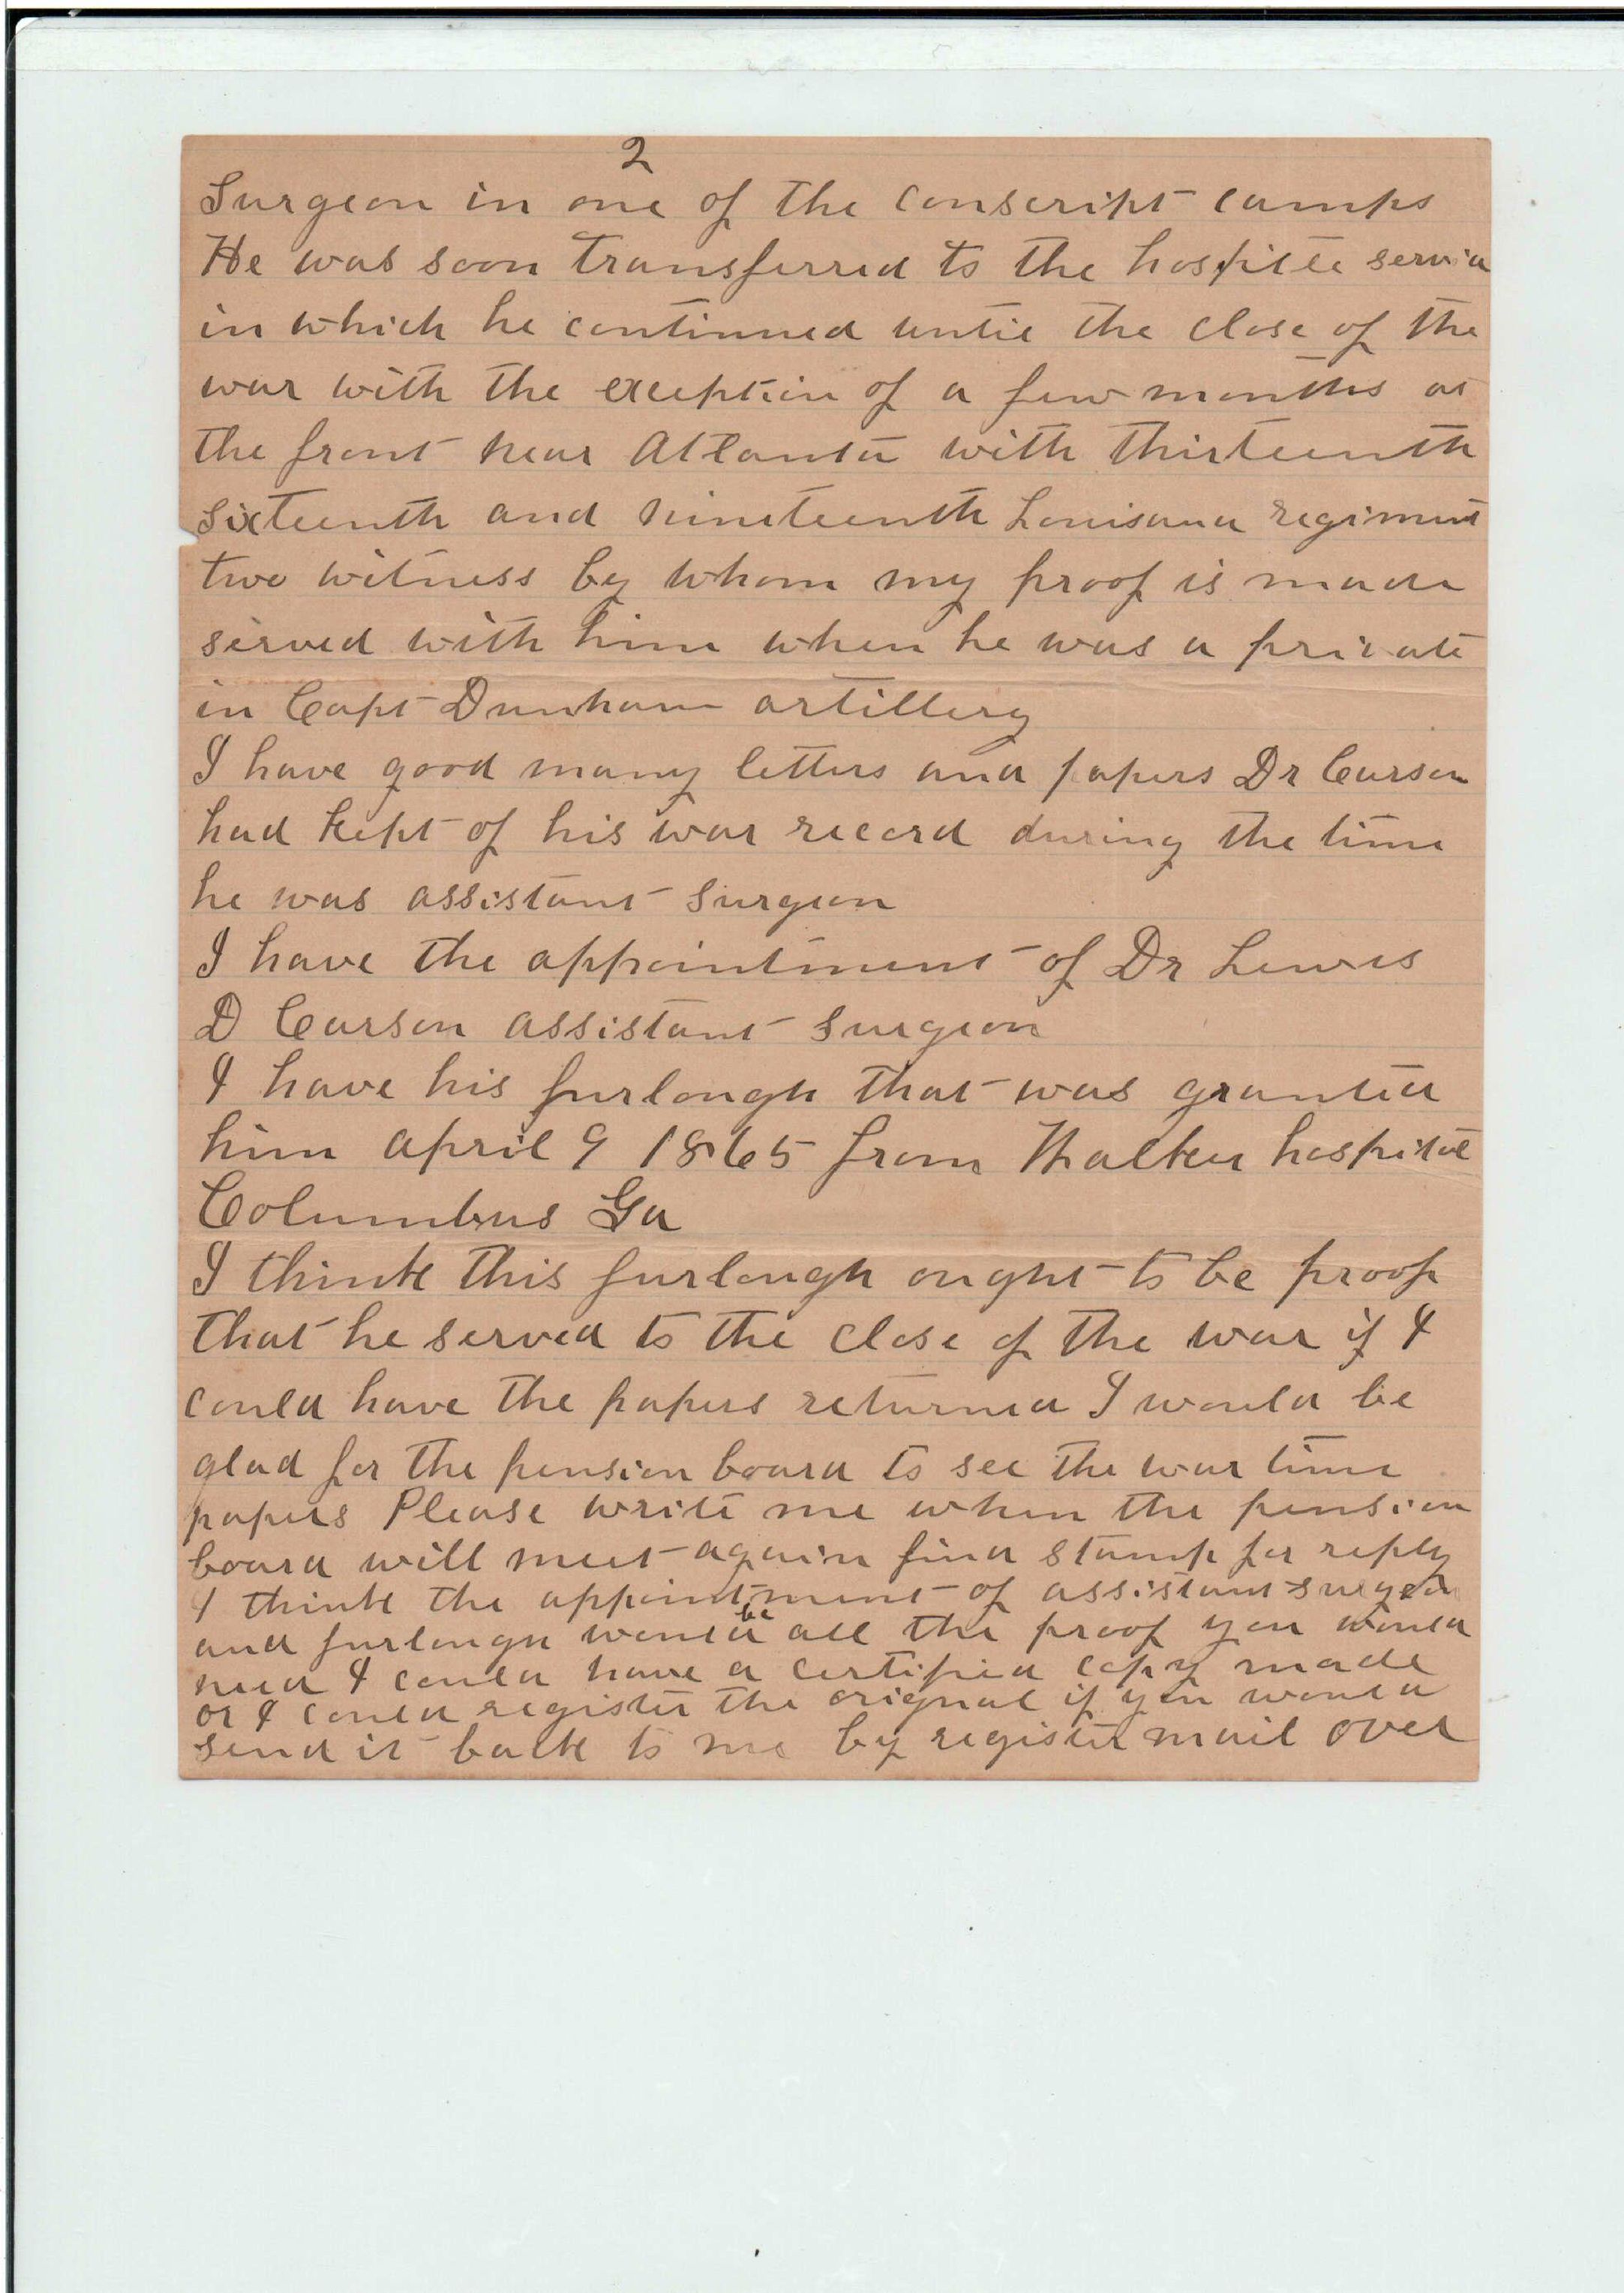 2
Surgeon in one of the conscript camps
He was soon transferred to the hospitle service
in which he continued until the close of the
war with the exception of a few months at
the front near Atlanta with thirteenth
sixteenth and nineteenth Louisana regiment
two witness by whom my proof is made
served with him when he was a private
in Capt Dunham artillery
I have good many letters and papers Dr Carson
had kept of his war record during the time
he was assistant surgeon
I have the appointment of Dr Lewis
D Carson assistant surgeon
I have his furlough that was granted
him april 9 1865 from Walker hospital
Columbus Ga
I think this furlough ought to be proof
that he served to the close of the war if I
could have the papers returned I would be
glad for the pension board to see the war time
papers Please write me when the pension
board will meet again find stamp for reply
I think the appointment of assistant surgeon
and furlough would be all the proof you would
need I could have a certified copy made
or I could register the orignal if you would
send it back to me by register mail over